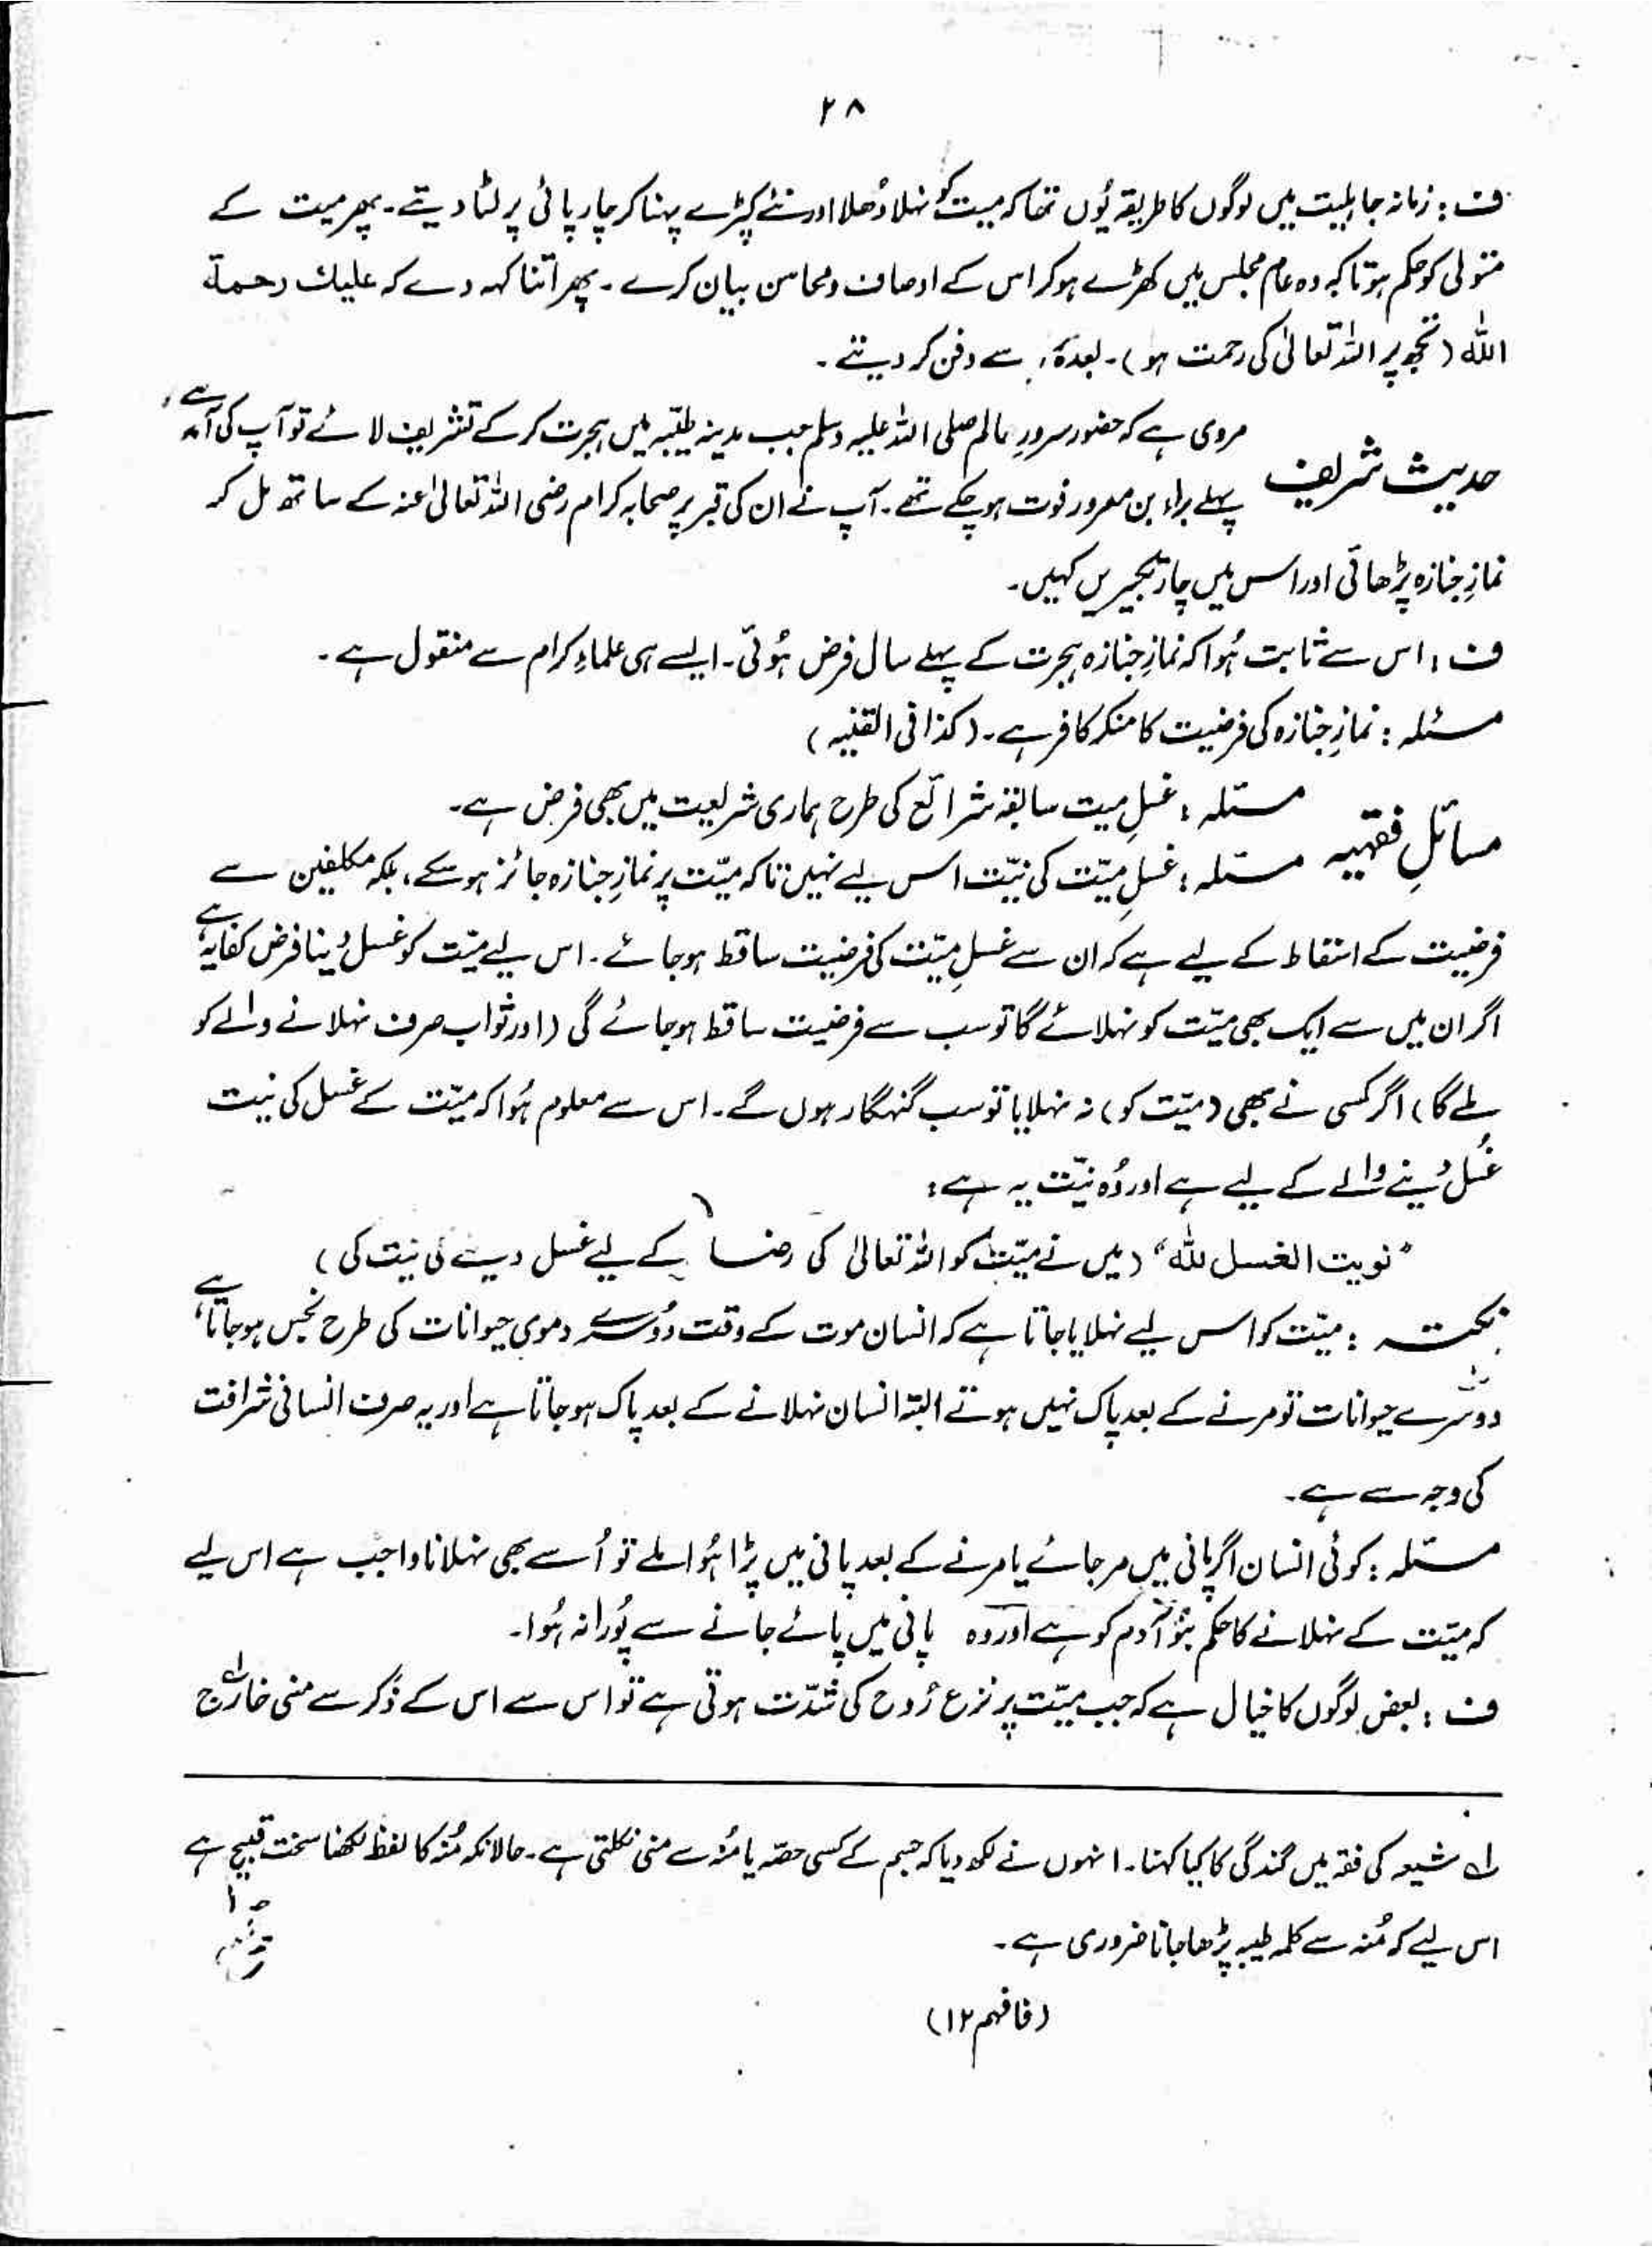 ۲۸
ف : زمانہ جاہلیت میں لوگوں کا طریقہ یُوں تھا کہ میت کو نہلا دُھلا اور نئے کپڑے پہنا کر چارپائی پر لٹا دیتے۔ پھر میت کے
متولی کو حکم ہوتا کہ وہ عام مجلس میں کھڑے ہو کر اس کے اوصاف و محاسن بیان کرے۔ پھر اتنا کہہ دے کہ علیك رحمة
الله (تجھ پر اللہ تعالیٰ کی رحمت ہو)۔ بعدہٗ، سے دفن کر دیتے۔
حدیث شریف مروی ہے کہ حضور سرورِ عالم صلی اللہ علیہ وسلم جب مدینہ طیّبہ میں ہجرت کر کے تشریف لائے تو آپ کی آمد سے
پہلے براء بن معرور فوت ہو چکے تھے۔ آپ نے ان کی قبر پر صحابہ کرام رضی اللہ تعالیٰ عنہ کے ساتھ مل کر
نمازِ جنازہ پڑھائی اور اس میں چار تکبیریں کہیں۔
ف : اس سے ثابت ہُوا کہ نمازِ جنازہ ہجرت کے پہلے سال فرض ہُوئی۔ ایسے ہی علماءِ کرام سے منقول ہے۔
مسئلہ : نمازِ جنازہ کی فرضیت کا منکر کافر ہے۔ (کذا فی القنیہ)
مسائلِ فقہیہ مسئلہ : غسلِ میت سابقہ شرائع کی طرح ہماری شریعت میں بھی فرض ہے۔
مسئلہ : غسلِ میّت کی نیّت اس لیے نہیں تاکہ میّت پر نمازِ جنازہ جائز ہو سکے، بلکہ مکلفین سے
فرضیت کے اسقاط کے لیے ہے کہ ان سے غسلِ میّت کی فرضیت ساقط ہو جائے۔ اس لیے میّت کو غسل دینا فرض کفایہ ہے
اگر ان میں سے ایک بھی میّت کو نہلائے گا تو سب سے فرضیت ساقط ہو جائے گی (اور ثواب صرف نہلانے والے کو
ملے گا) اگر کسی نے بھی (میّت کو) نہ نہلایا تو سب گنہگار ہوں گے۔ اس سے معلوم ہُوا کہ میّت کے غسل کی نیت
غُسل دینے والے کے لیے ہے اور وُہ نیّت یہ ہے :
"نویت الغسل للہ" (میں نے میّت کو اللہ تعالیٰ کی رضا کے لیے غسل دینے کی نیت کی)
نکتہ : میّت کو اس لیے نہلایا جاتا ہے کہ انسان موت کے وقت دُوسرے دموی حیوانات کی طرح نجس ہو جاتا ہے،
دوسرے حیوانات تو مرنے کے بعد پاک نہیں ہوتے البتہ انسان نہلانے کے بعد پاک ہو جاتا ہے اور یہ صرف انسانی شرافت
کی وجہ سے ہے۔
مسئلہ : کوئی انسان اگر پانی میں مر جائے یا مرنے کے بعد پانی میں پڑا ہُوا ملے تو اُسے بھی نہلانا واجب ہے اس لیے
کہ میّت کے نہلانے کا حکم بنو آدم کو ہے اور وہ پانی میں پائے جانے سے پُورا نہ ہُوا۔
ف : بعض لوگوں کا خیال ہے کہ جب میّت پر نزع رُوح کی شدّت ہوتی ہے تو اس سے اس کے ذکر سے منی خارج
لہ شیعہ کی فقہ میں گندگی کا کیا کہنا۔ انہوں نے لکھ دیا کہ جسم کے کسی حصّہ یا مُنہ سے منی نکلتی ہے۔ حالانکہ مُنہ کا لفظ لکھنا سخت قبیح ہے
اس لیے کہ مُنہ سے کلمہ طیبہ پڑھا جانا ضروری ہے۔
(فافہم ۱۲)